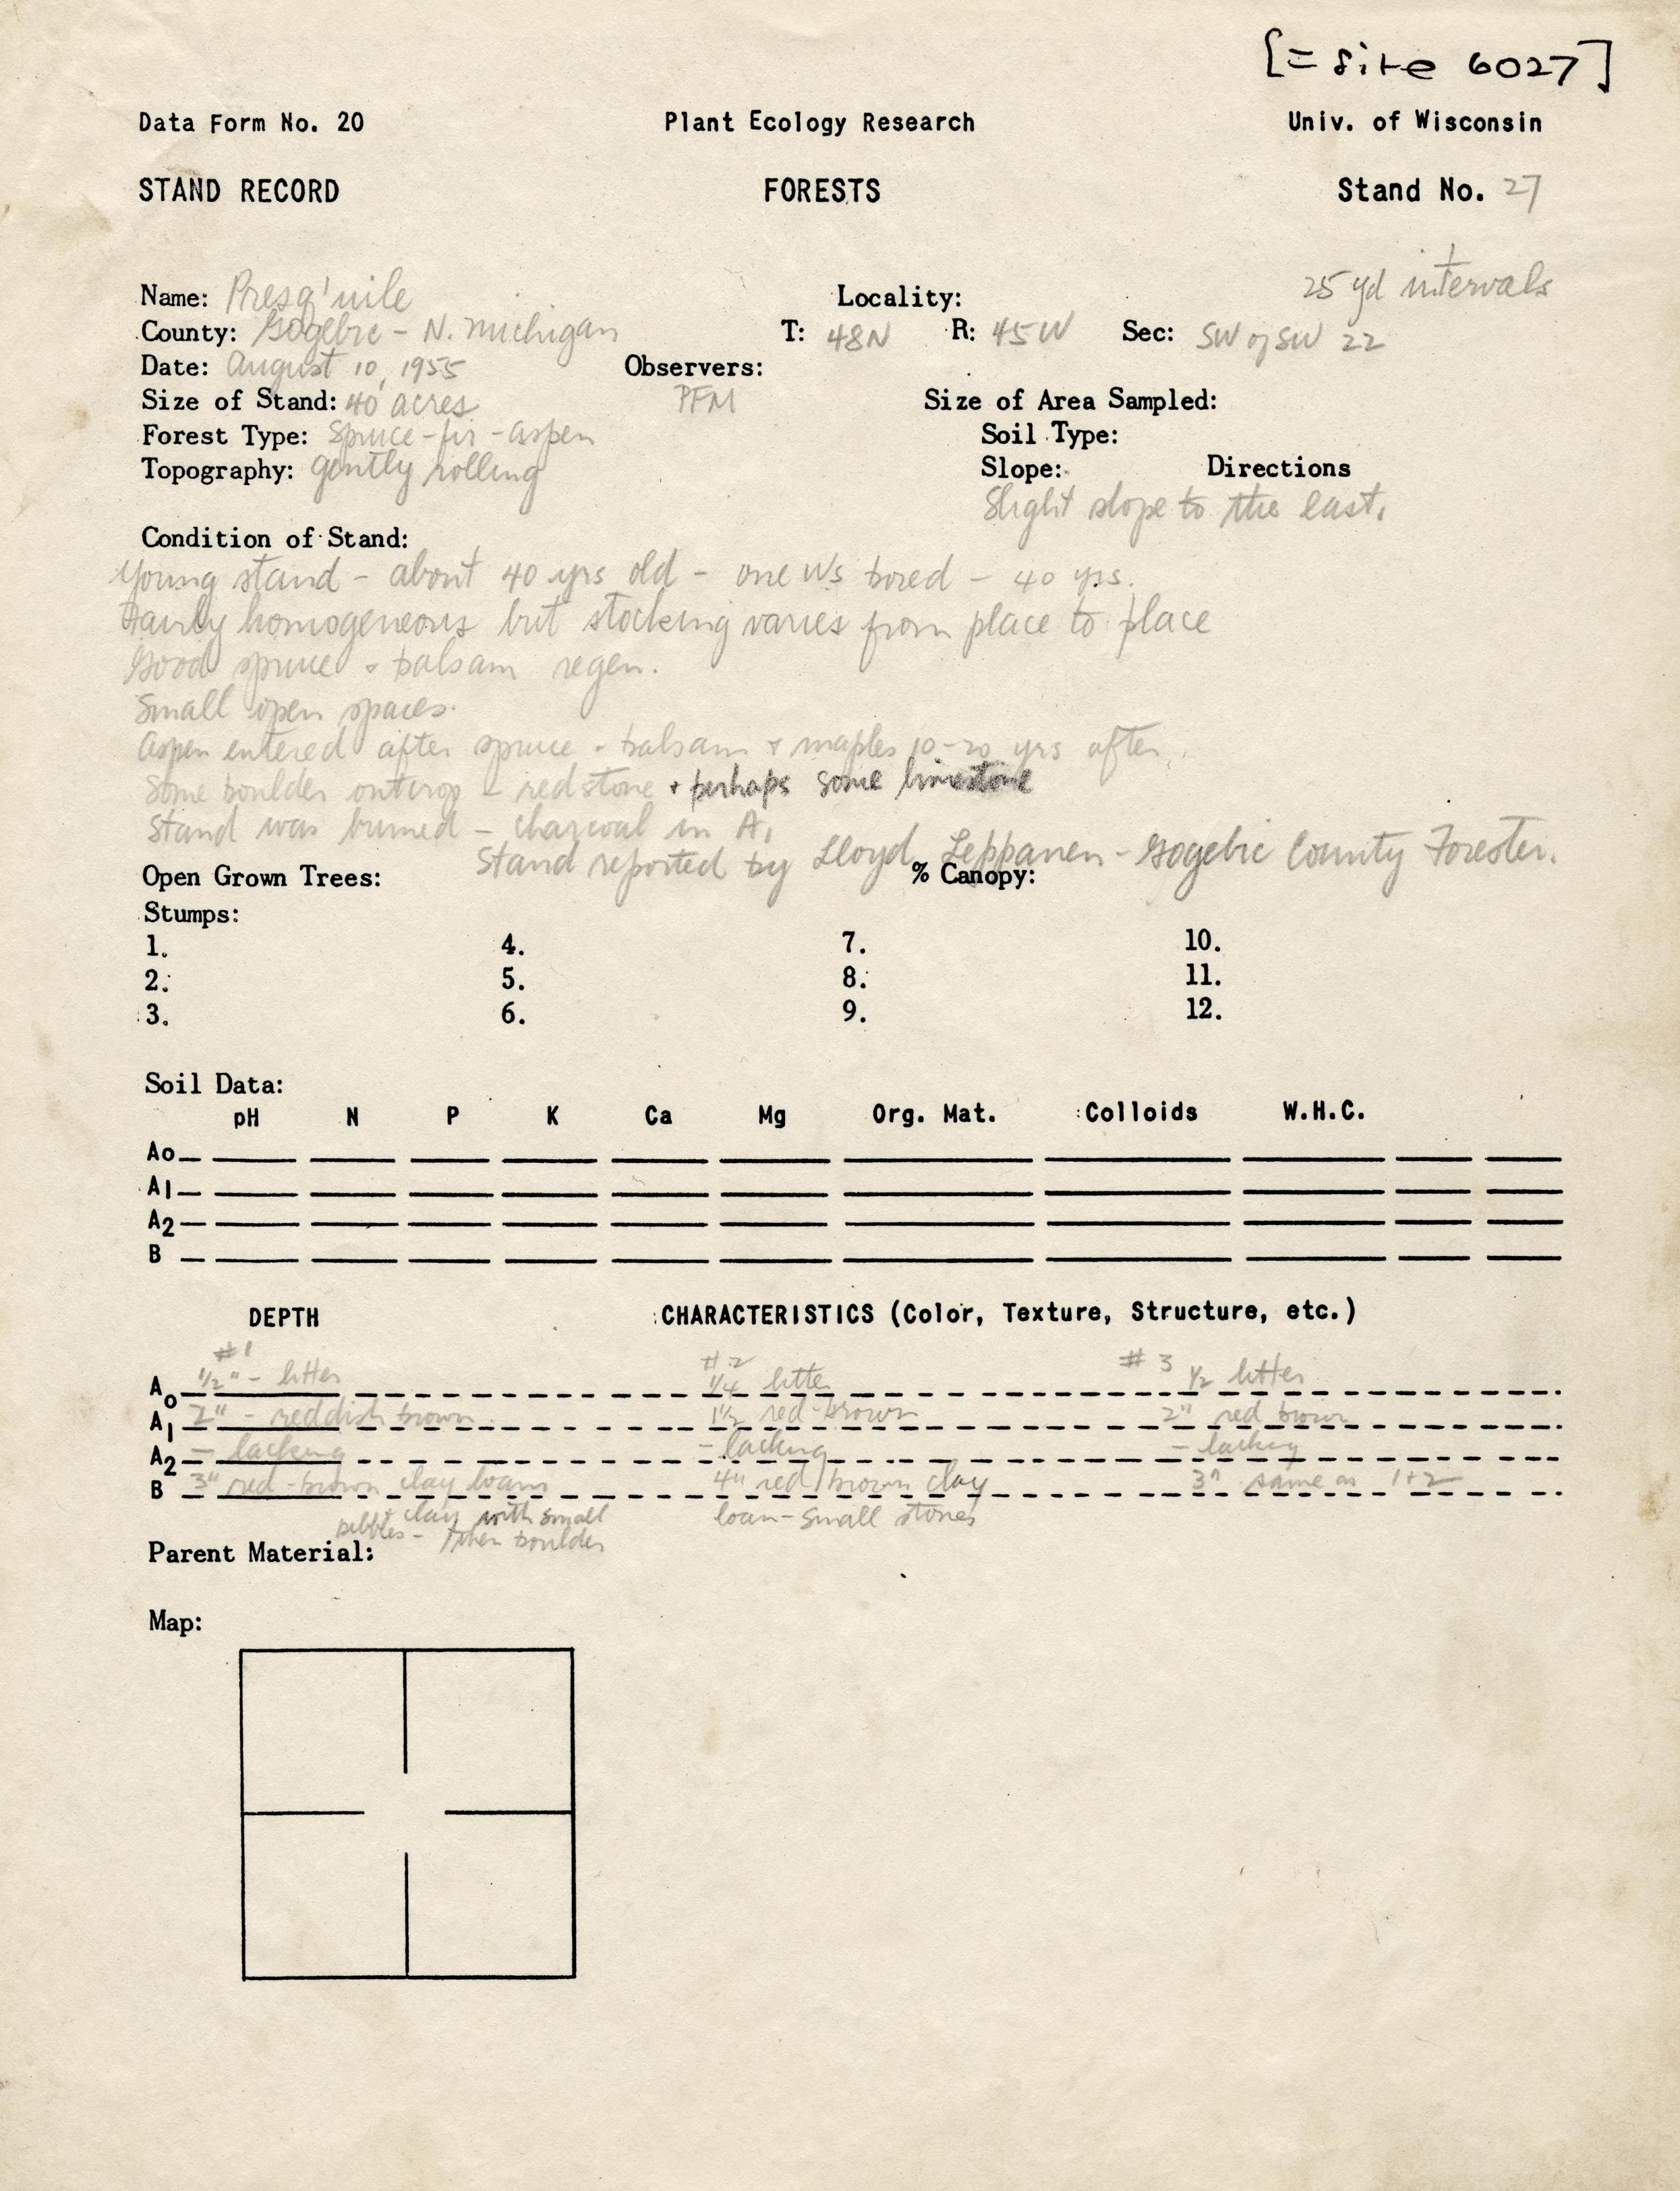 [= site 6027]
Data Form No. 20 Plant Ecology Research Univ. of Wisconsin
STAND RECORD FORESTS Stand No. 27
25 yd intervals
Name: Presq'uile Locality:
County: Gogebic - N. Michigan T: 48N R: 45W Sec: SW of SW 22
Date: August 10, 1955 Observers:
Size of Stand: 40 acres PFM Size of Area Sampled:
Forest Type: Spruce-fir-aspen Soil Type:
Topography: gently rolling Slope: Directions
Slight slope to the east.
Condition of Stand:
Young stand - about 40 yrs old - one Ws bored - 40 yrs.
Fairly homogeneous but stocking varies from place to place
Good spruce + balsam regen.
Small open spaces.
Aspen entered after spruce - balsam + maples 10-20 yrs after.
Some boulder outcrop - redstone + perhaps some limestone
Stand was burned - charcoal in A1
Stand reported by Lloyd Leppanen - Gogebic County Forester.
Open Grown Trees: % Canopy:
Stumps:
1. 4. 7. 10.
2. 5. 8. 11.
3. 6. 9. 12.
Soil Data:
pH N P K Ca Mg Org. Mat. Colloids W.H.C.
Ao
A1
A2
B
DEPTH CHARACTERISTICS (Color, Texture, Structure, etc.)
#1 #2 #3
Ao 1/2" - litter 1/4 litter 1/2 litter
A1 2" - reddish brown 1 1/2 red-brown 2" red brown
A2 - lacking - lacking - lacking
B 3" red-brown clay loam 4" red brown clay 3" same as 1+2
clay with small loam - small stones
pebbles - then boulder
Parent Material:
Map: